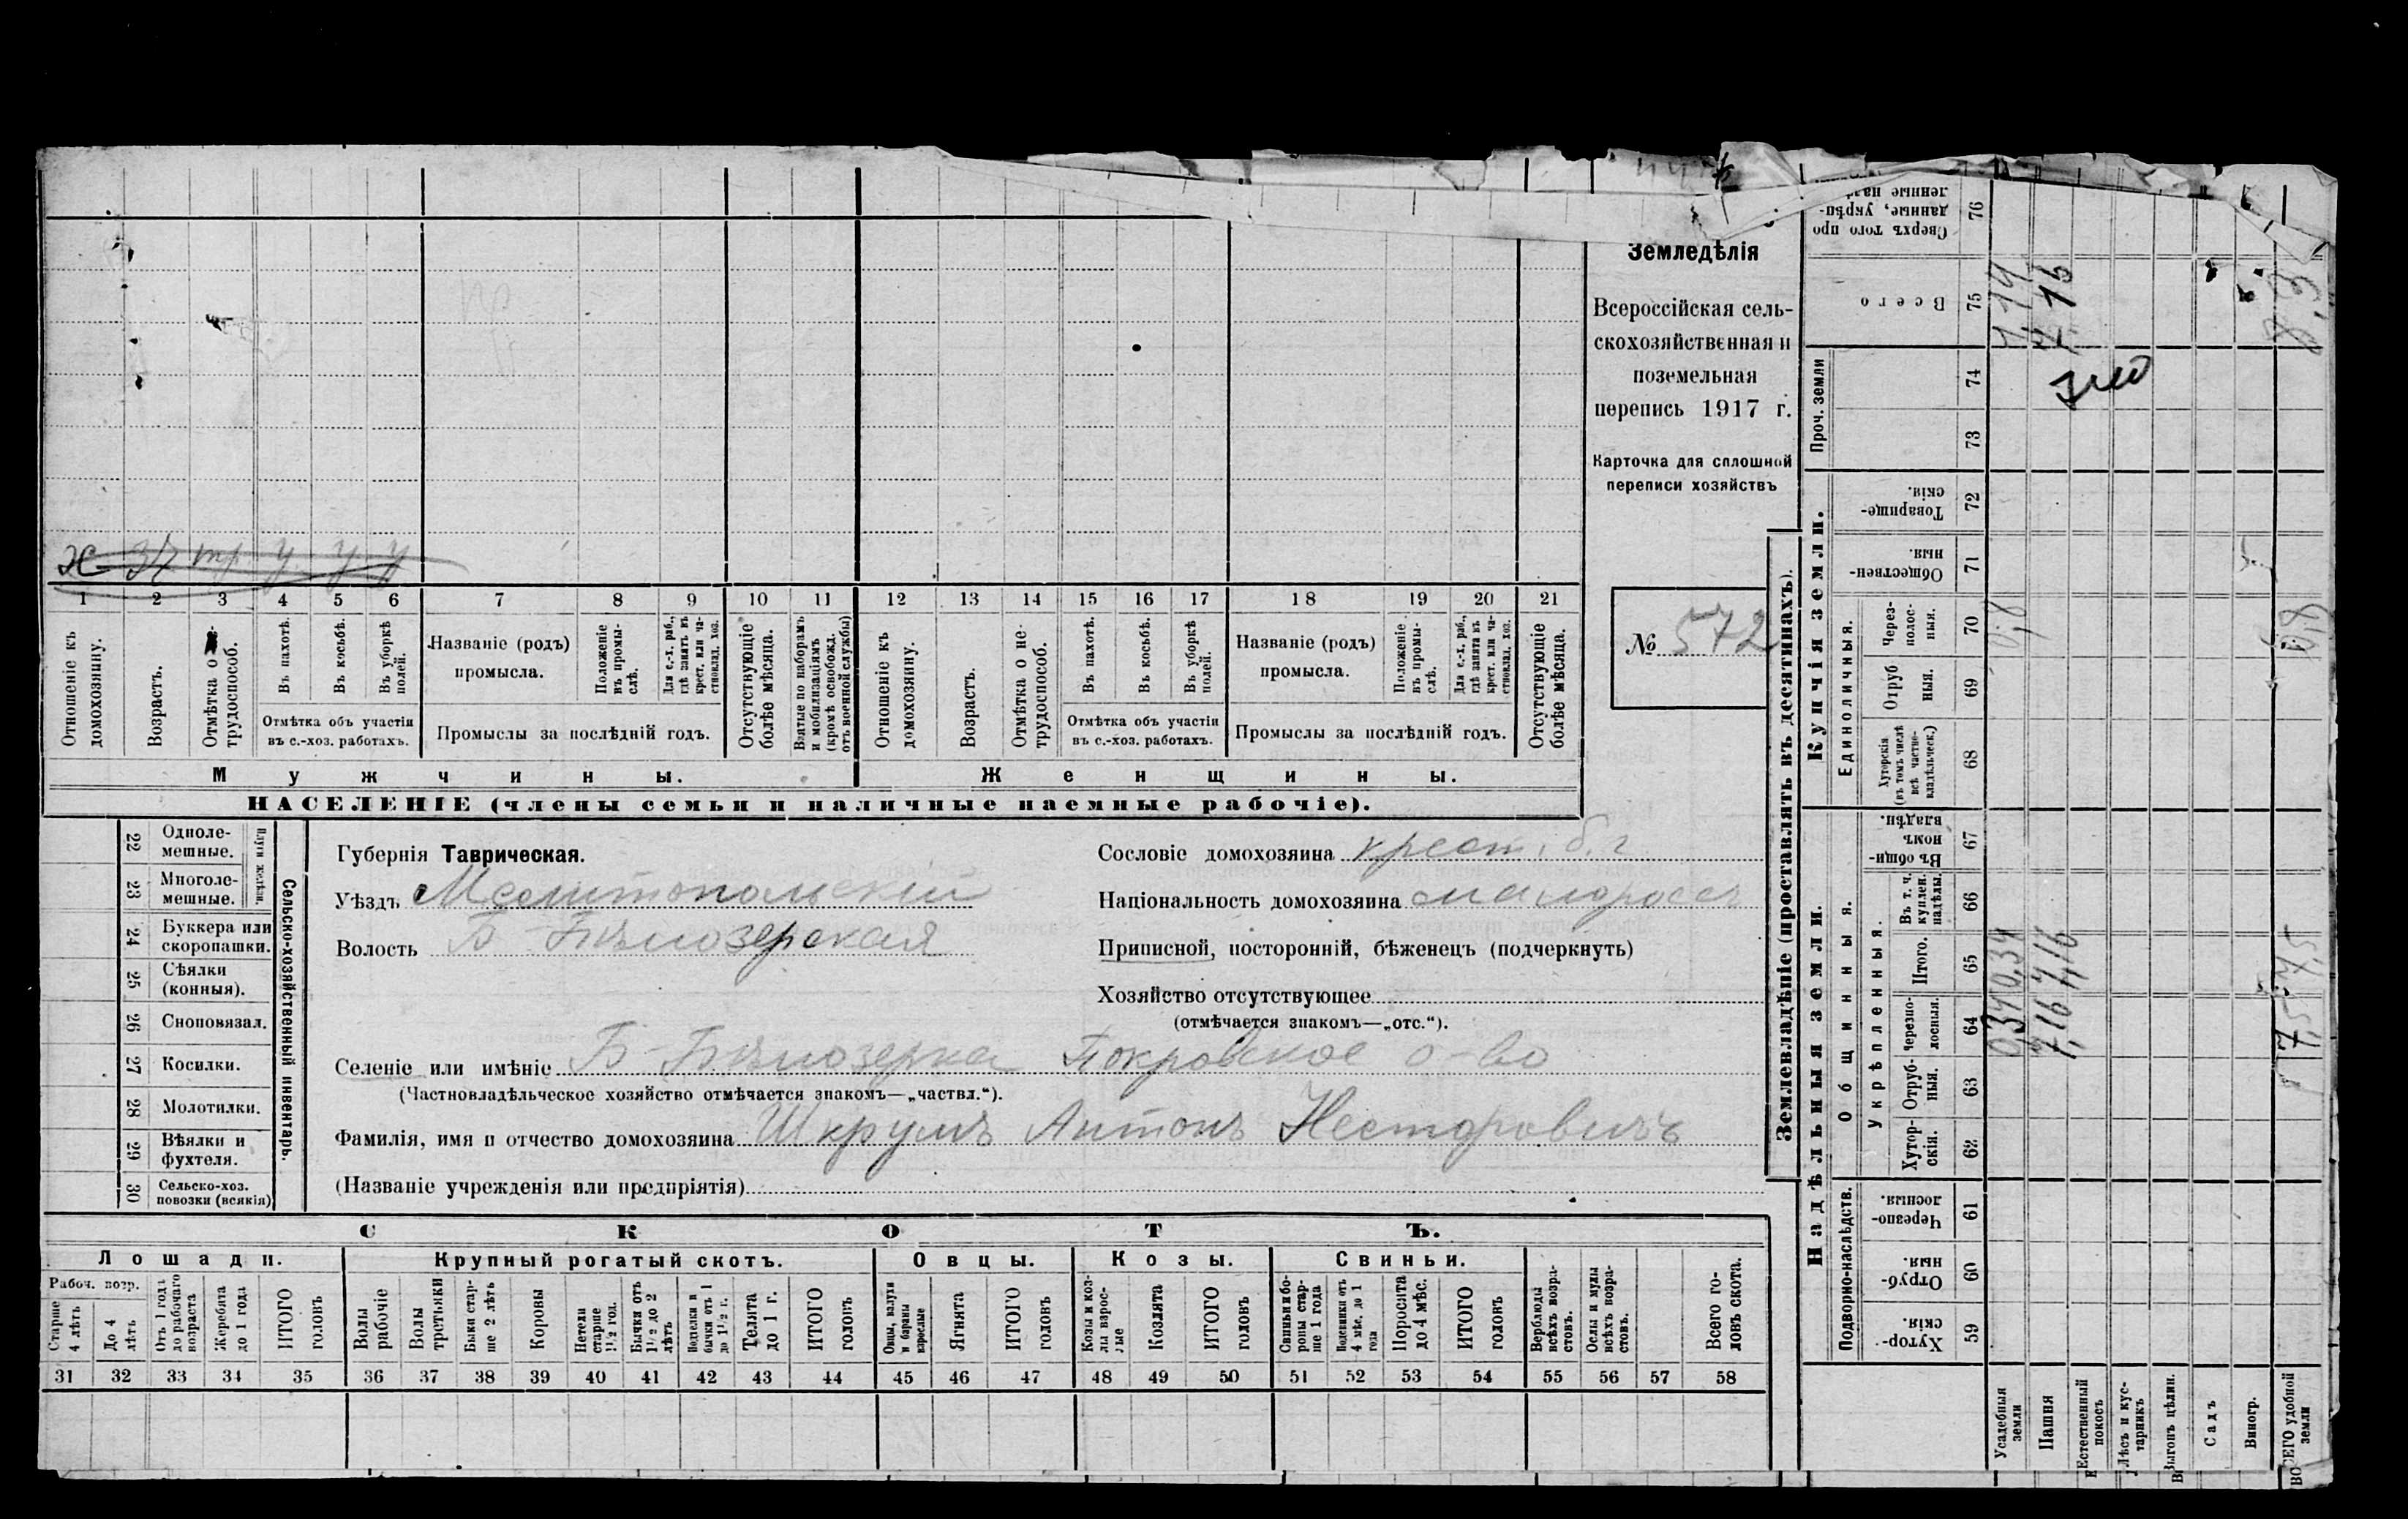 Земледѣлія
Всероссійская сель-
скохозяйственная и
поземельная
перепись 1917 г.
Карточка для сплошной
переписи хозяйствъ
№ 572
х 37 тр у у у
1 2 3 4 5 6 7 8 9 10 11 12 13 14 15 16 17 18 19 20 21
Отношеніе къ домохозяину.
Возрастъ.
Отмѣтка о не- трудоспособ.
Въ пахотѣ.
Въ косьбѣ.
Въ уборкѣ полей.
Отмѣтка объ участіи
въ с.-хоз. работахъ.
Названіе (родъ)
промысла.
Положеніе въ промы- слѣ.
Для с.-х. раб., гдѣ занятъ въ крест. или ча- стновлад. хоз.
Промыслы за послѣдній годъ.
Отсутствующіе болѣе мѣсяца.
Взятые по наборамъ и мобилизаціямъ (кромѣ освобожд. отъ военной службы)
Отношеніе къ домохозяину.
Возрастъ.
Отмѣтка о не- трудоспособ.
Въ пахотѣ.
Въ косьбѣ.
Въ уборкѣ полей.
Отмѣтка объ участіи
въ с.-хоз. работахъ.
Названіе (родъ)
промысла.
Положеніе въ промы- слѣ.
Для с.-х. раб., гдѣ занята въ крест. или ча- стновлад. хоз.
Промыслы за послѣдній годъ.
Отсутствующіе болѣе мѣсяца.
Мужчины. Женщины.
НАСЕЛЕНІЕ (члены семьи и наличные наемные рабочіе).
Сельско-хозяйственный инвентарь.
Плуги желѣзн.
22 Одноле- мешные.
23 Многоле- мешные.
24 Буккера или скоропашки.
25 Сѣялки (конныя).
26 Сноповязал.
27 Косилки.
28 Молотилки.
29 Вѣялки и фухтеля.
30 Сельско-хоз. повозки (всякія)
Губернія Таврическая.
Уѣздъ Мелитопольскій
Волость Б-Бѣлозерская
Сословіе домохозяина крест. б. г
Національность домохозяина малороссъ
Приписной, посторонній, бѣженецъ (подчеркнуть)
Хозяйство отсутствующее
(отмѣчается знакомъ—„отс.“).
Селеніе или имѣніе Б-Бѣлозерка Покровское о-во
(Частновладѣльческое хозяйство отмѣчается знакомъ—„частвл.“).
Фамилія, имя и отчество домохозяина Шкрумъ Антонъ Несторовичъ
(Названіе учрежденія или предпріятія)
СКОТЪ.
Лошади. Крупный рогатый скотъ. Овцы. Козы. Свиньи.
Рабоч. возр.
Старше 4 лѣтъ
До 4 лѣтъ
Отъ 1 года до рабочаго возраста
Жеребята до 1 года
ИТОГО головъ
Волы рабочіе
Волы третьяки
Быки стар- ше 2 лѣтъ
Коровы
Нетели старше 1½ год.
Бычки отъ 1½ до 2 лѣтъ
Подтелки и бычки отъ 1 до 1½ г.
Телята до 1 г.
ИТОГО головъ
Овцы, валухи и бараны взрослые
Ягнята
ИТОГО головъ
Козы и коз- лы взрос- лые
Козлята
ИТОГО головъ
Свиньи и бо- ровы стар- ше 1 года
Подсвинки отъ 4 мѣс. до 1 года
Поросята до 4 мѣс.
ИТОГО головъ
Верблюды всѣхъ возра- стовъ.
Ослы и мулы всѣхъ возра- стовъ.
Всего го- ловъ скота.
31 32 33 34 35 36 37 38 39 40 41 42 43 44 45 46 47 48 49 50 51 52 53 54 55 56 57 58
Землевладѣніе (проставлять въ десятинахъ).
Надѣльныя земли.
Подворно-наслѣдств.
Хутор- скія. 59
Отруб- ныя. 60
Черезпо- лосныя. 61
Общинныя.
Укрѣпленныя.
Хутор- скія. 62
Отруб- ныя. 63
Черезпо- лосныя. 64
Итого. 65
Въ т. ч. куплен. надѣлы. 66
Въ общи- номъ владѣн. 67
Купчія земли.
Единоличныя.
Хуторскія (въ томъ числѣ всѣ частно- владѣльческ.) 68
Отруб ныя. 69
Через- полос- ныя. 70
Обществен- ныя. 71
Товарище- скія. 72
Проч. земли
73
74
Всего 75
Сверхъ того про данные, укрѣп- ленные 76
Усадебныя земли 0,34 0,34
Пашня 7,16 7,16
Естественный покосъ
Лѣсъ и кус- тарникъ
Выгонъ цѣлин.
Садъ
Виногр.
ВСЕГО удобной земли 7,5 7,5